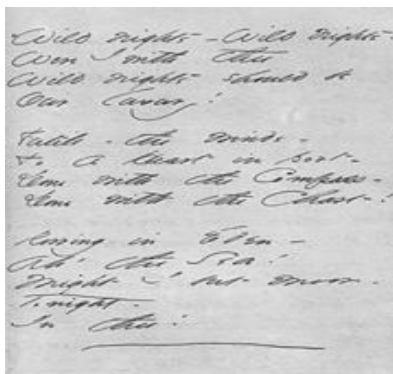 Wild nights - Wild nights -
Were I with thee
Wild nights should be
Our luxury!
Futile - the winds -
To a Heart in port -
Done with the Compass -
Done with the Chart -!
Rowing in Eden -
Ah! the Sea!
Might I but moor -
Tonight -
In thee!